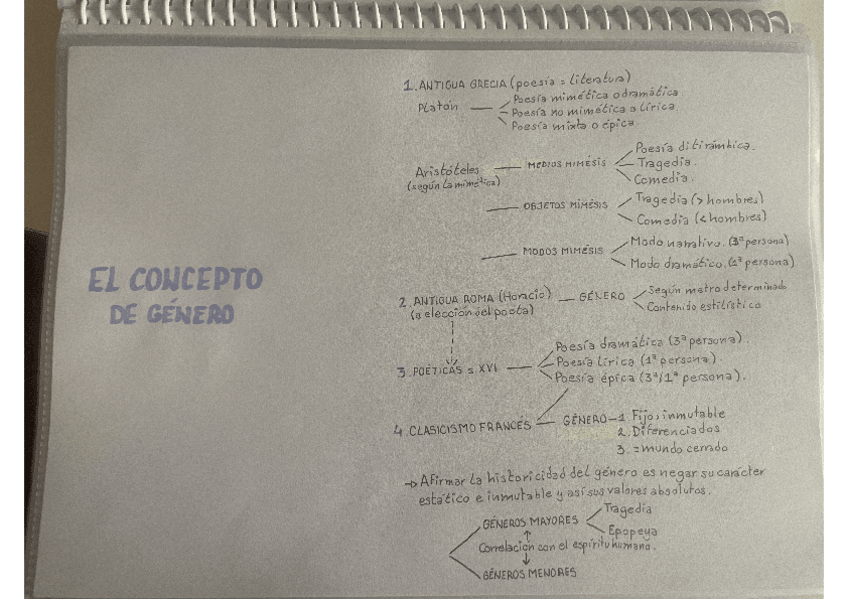 EL CONCEPTO
DE GÉNERO
1. ANTIGUA GRECIA (poesía = literatura)
Platón — Poesía mimética o dramática.
Poesía no mimética o lírica.
Poesía mixta o épica.
Aristóteles — MEDIOS MIMÉSIS
(según la mimética)
Poesía ditirámbica.
Tragedia.
Comedia.
— OBJETOS MIMÉSIS
Tragedia (> hombres)
Comedia (< hombres)
— MODOS MIMÉSIS
Modo narrativo. (3ª persona)
Modo dramático. (1ª persona)
2. ANTIGUA ROMA (Horacio) — GÉNERO
(a elección del poeta)
Según metro determinado
Contenido estilístico
3. POÉTICAS s XVI — Poesía dramática (3ª persona).
Poesía lírica (1ª persona).
Poesía épica (3ª/1ª persona).
4. CLASICISMO FRANCÉS — GÉNERO — 1. Fijo, inmutable
2. Diferenciados
3. = mundo cerrado
→ Afirmar la historicidad del género es negar su carácter
estático e inmutable y así sus valores absolutos.
GÉNEROS MAYORES
Tragedia
Epopeya
↑
Correlación con el espíritu humano.
↓
GÉNEROS MENORES